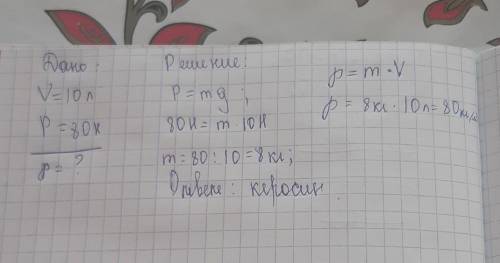 Дано:
V = 10 л
P = 80 н
p = ?
Решение:
P = mg ;
80Н = m · 10Н
m = 80 : 10 = 8 кг;
Ответ: керосин.
p = m · V
p = 8кг · 10л = 80 кг/